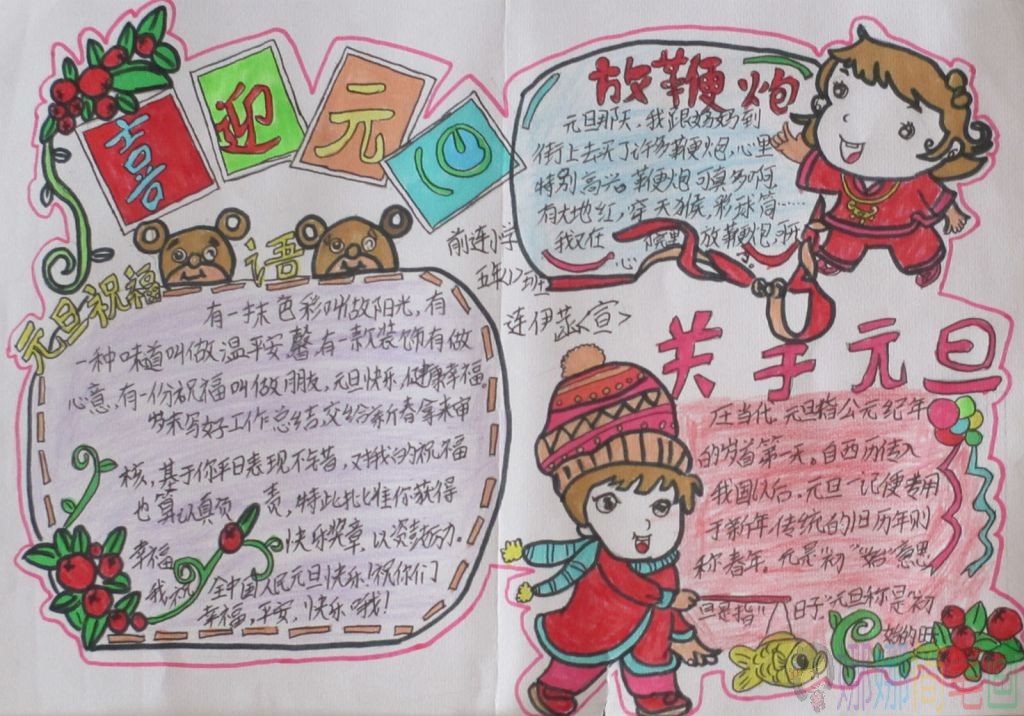 喜迎元旦
元旦祝福语
有一抹色彩叫做阳光,有
一种味道叫做温平安馨,有一款装饰有做
心意,有一份祝福叫做朋友,元旦快乐,健康幸福
岁末写好工作总结,交给新春拿来审
核,基于你平日表现不错,对我的祝福
也算认真负责,特此批准你获得
幸福快乐奖章,以资鼓励.
我祝全中国人民元旦快乐!祝你们
幸福,平安,快乐哦!
前连小学
五年〈2〉班
连伊蕊〈宣〉
放鞭炮
元旦那天,我跟妈妈到
街上去买了许多鞭炮,心里
特别高兴.鞭炮可真多啊
有大地红,穿天猴,彩球筒……
我又在 放鞭炮,开
心
关于元旦
在当代,元旦指公元纪年
的岁首第一天。自西历传入
我国以后,元旦一记便专用
于新年,传统的旧历年则
称春年。元是初"始"意思
旦是指"日子,"元旦"称是"初
始的日
娜娜简笔画